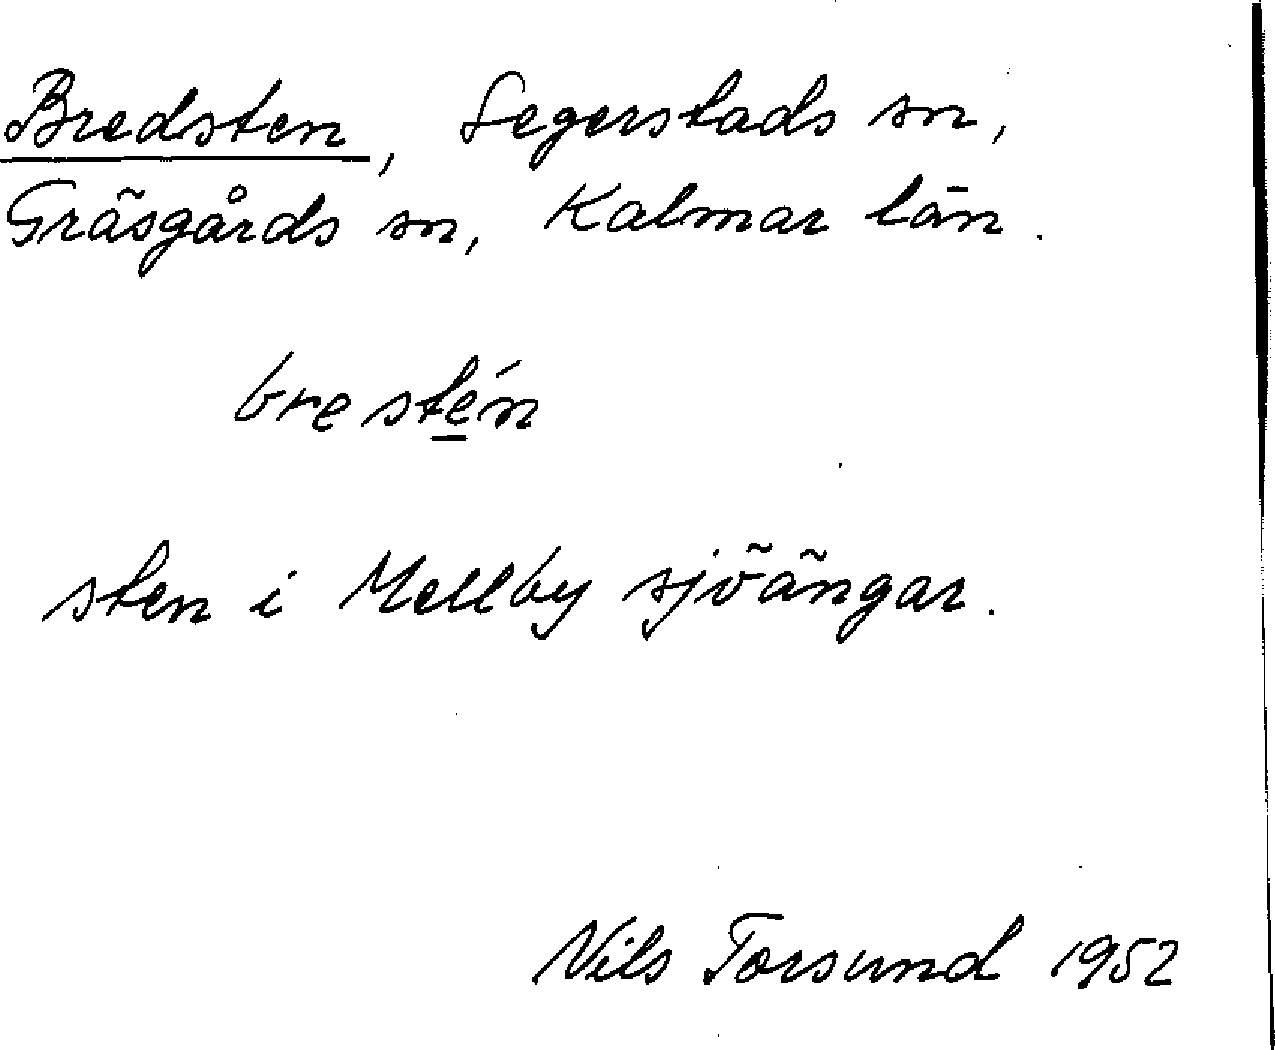 Bredsten, Segerstads sn,
Gräsgårds sn, Kalmar län.
brestén
sten i Mellby sjöängar.
Nils Torsund 1952